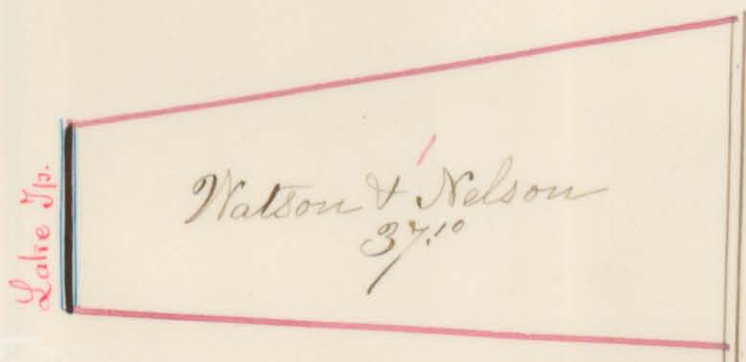 Lake Tp.
Watson & Nelson
37.10